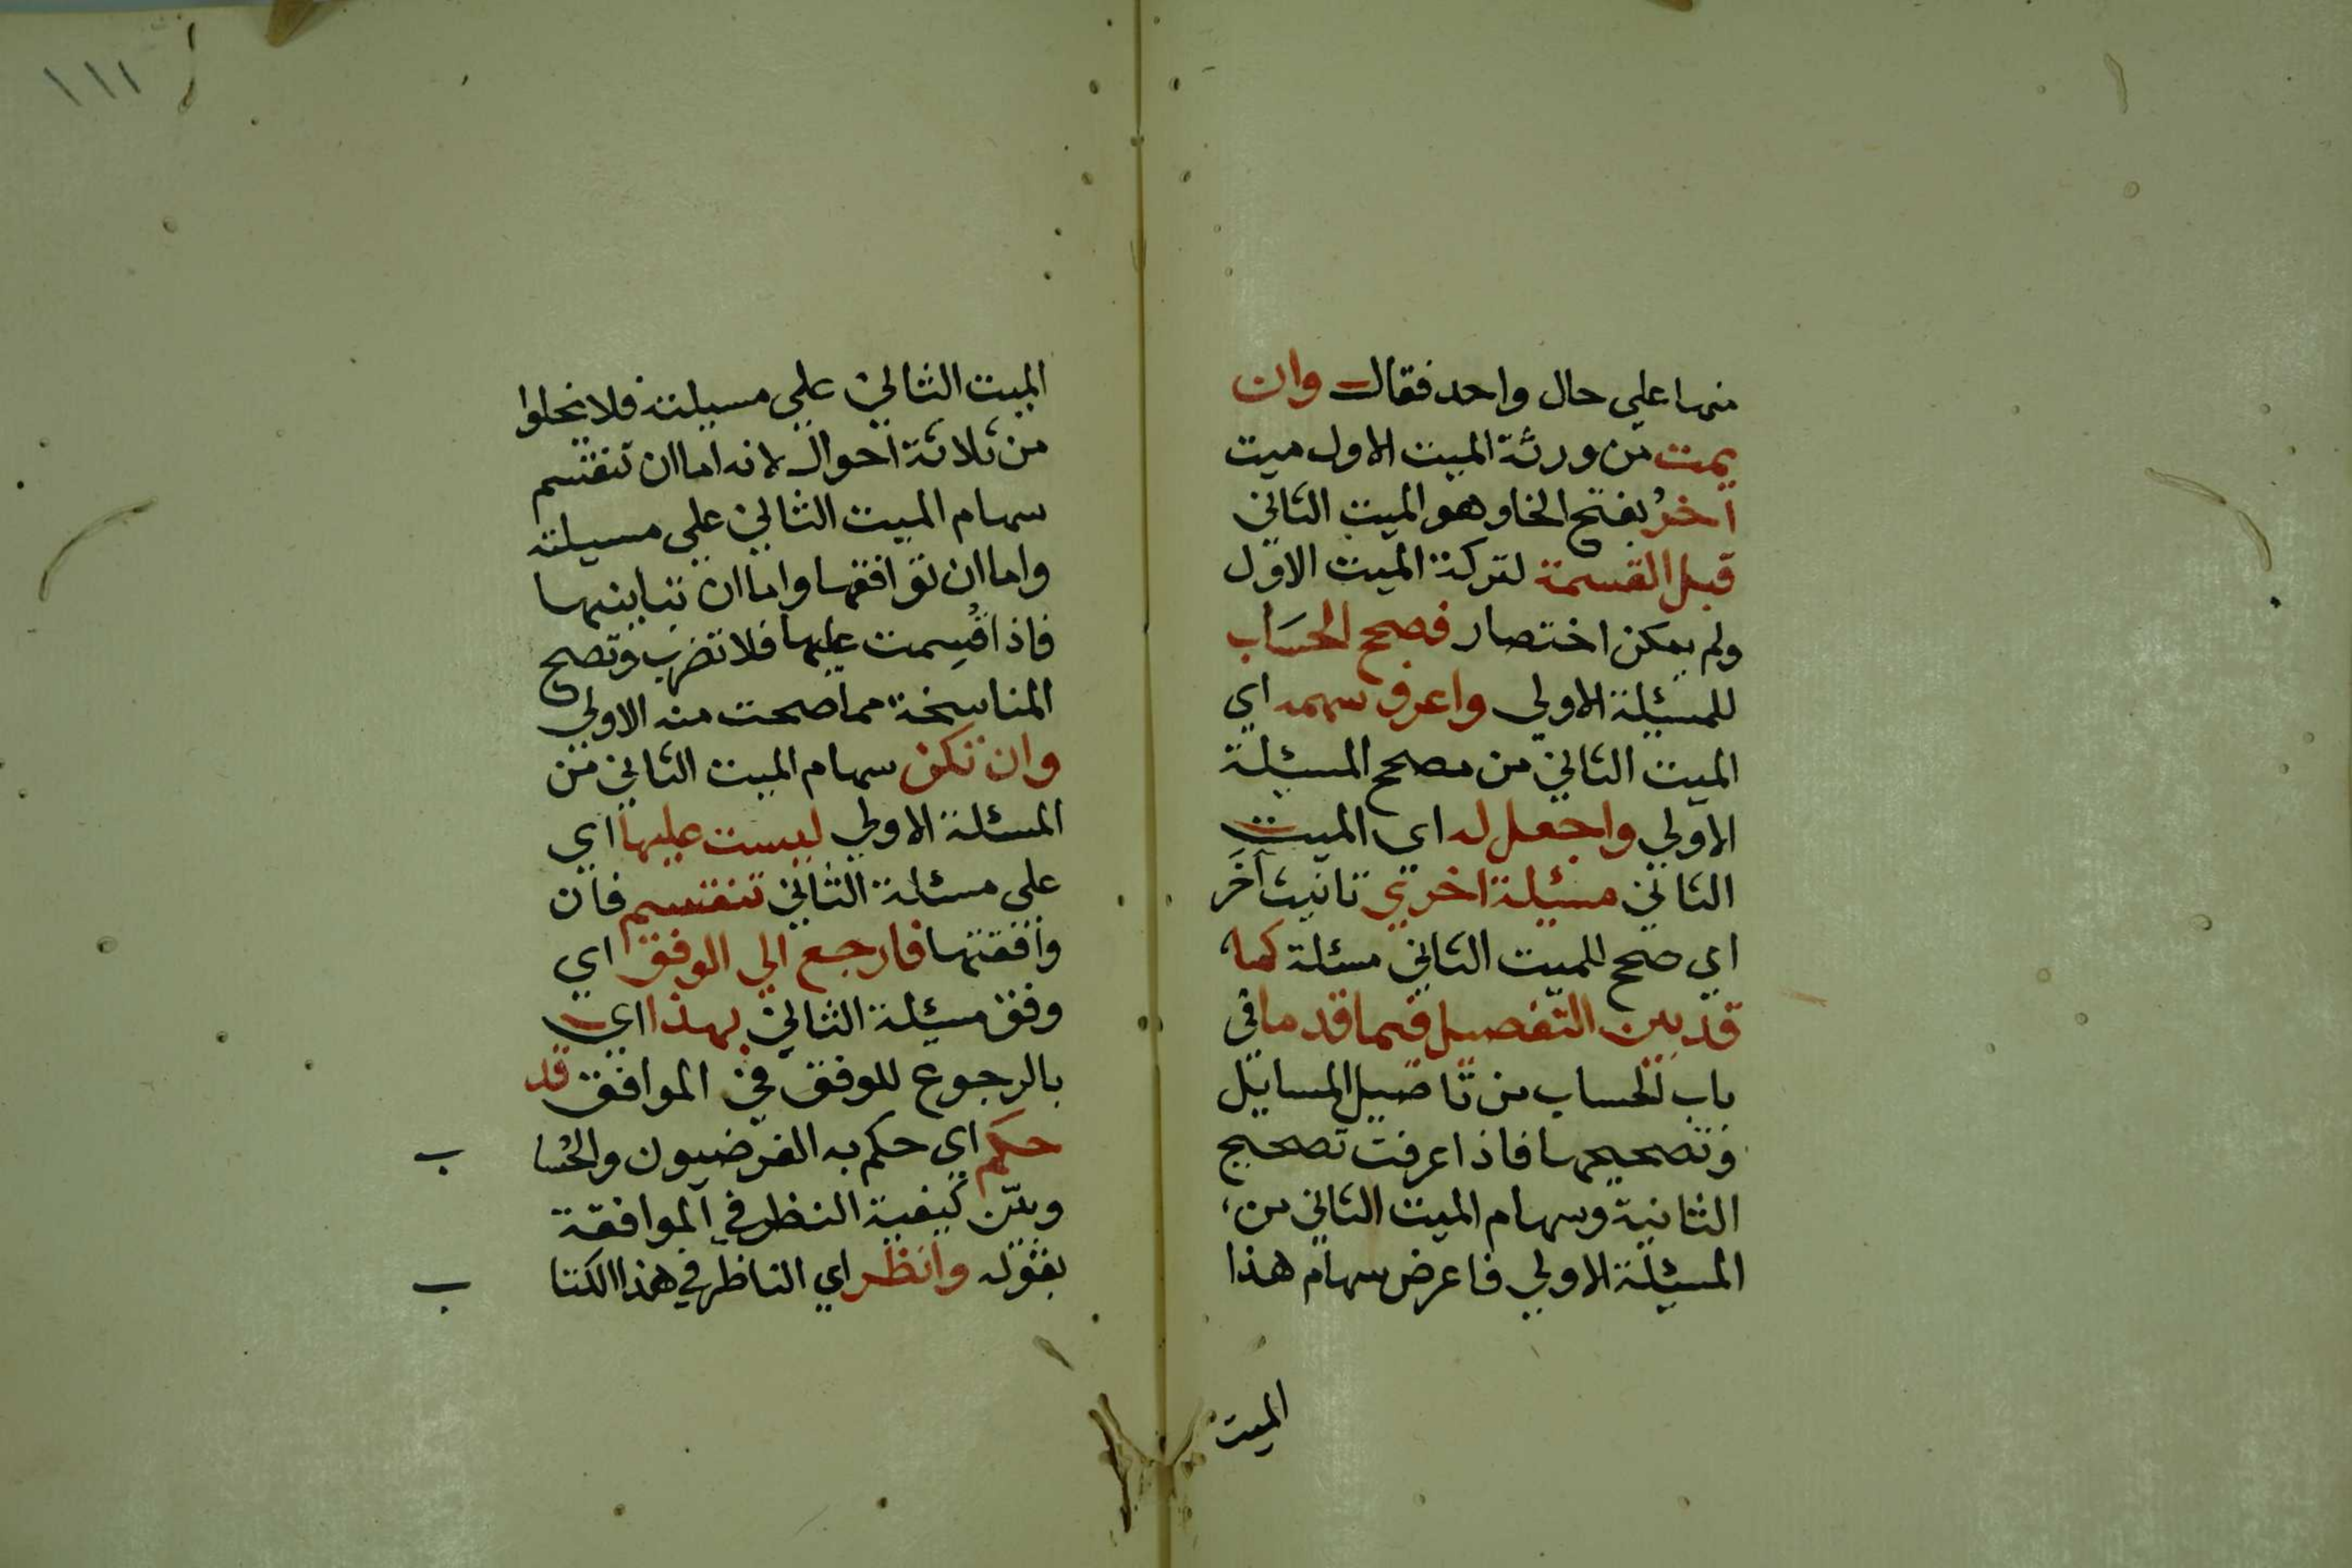 منها علي حال واحد فقال وان
يمت من ورثة الميت الاول ميت
آخرُ بفتح الخا وهو الميت الثاني
قبل القسمة لتركة الميت الاول
ولم يمكن اختصار فصحح الحسَاب
للمسئلة الاولي واعرف سهمه اي
الميت الثاني من مصحح المسئلة
الاولي واجعل له اي الميت
الثاني مسئلة اخري تانيث آخَر
اي صحح للميت الثاني مسئلة كما
قد بين التفصيل فيما قدما في
باب الحساب من تاصيل المسايل
وتصحيحها فاذا عرفت تصحيح
الثانية وسهام الميت الثاني من
المسئلة الاولي فاعرض سهام هذا
الميت
١١١
الميت الثاني علي مسيلته فلا يخلوا
من ثلاثة احوال لانه اما ان تنقسم
سهام الميت الثاني علي مسيلته
واما ان توافقها واما ان تباينها
فاذا قُسِمت عليها فلا تضرب وتصح
المناسخة مما صحت منه الاولي
وان تكن سهام الميت الثاني من
المسئلة الاولي ليست عليها اي
علي مسئلة الثاني تنقسم فان
وافقتها فارجع الي الوفق اي
وفق مسئلة الثاني بهذا اي
بالرجوع للوفق في الموافق قد
حكم اي حكم به الفرضيون والحُسا ب
وبيّن كيفية النظر في الموافقة
بقوله وانظر اي الناظر في هذا الكتا ب